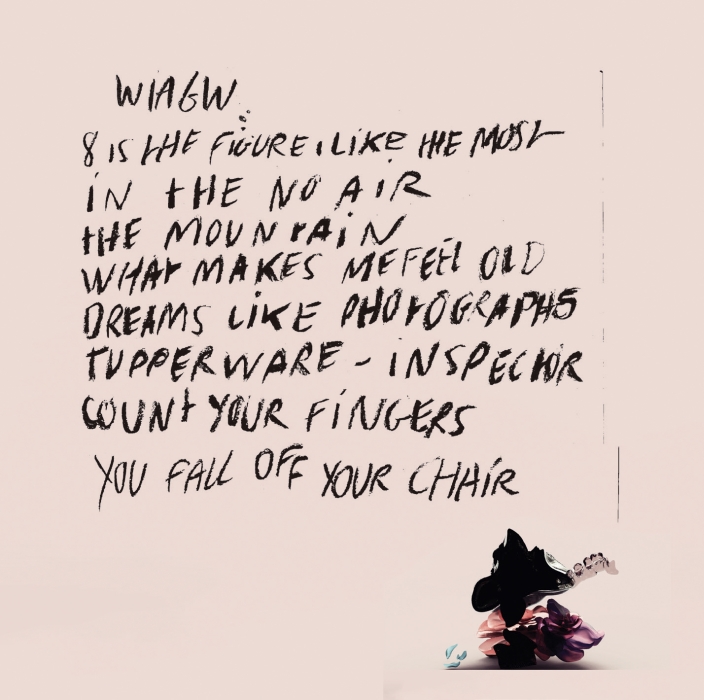 WIAGW
8 IS THE FIGURE I LIKE THE MOST
IN THE NO AIR
THE MOUNTAIN
WHAT MAKES ME FEEL OLD
DREAMS LIKE PHOTOGRAPHS
TUPPERWARE - INSPECTOR
COUNT YOUR FINGERS
YOU FALL OFF YOUR CHAIR